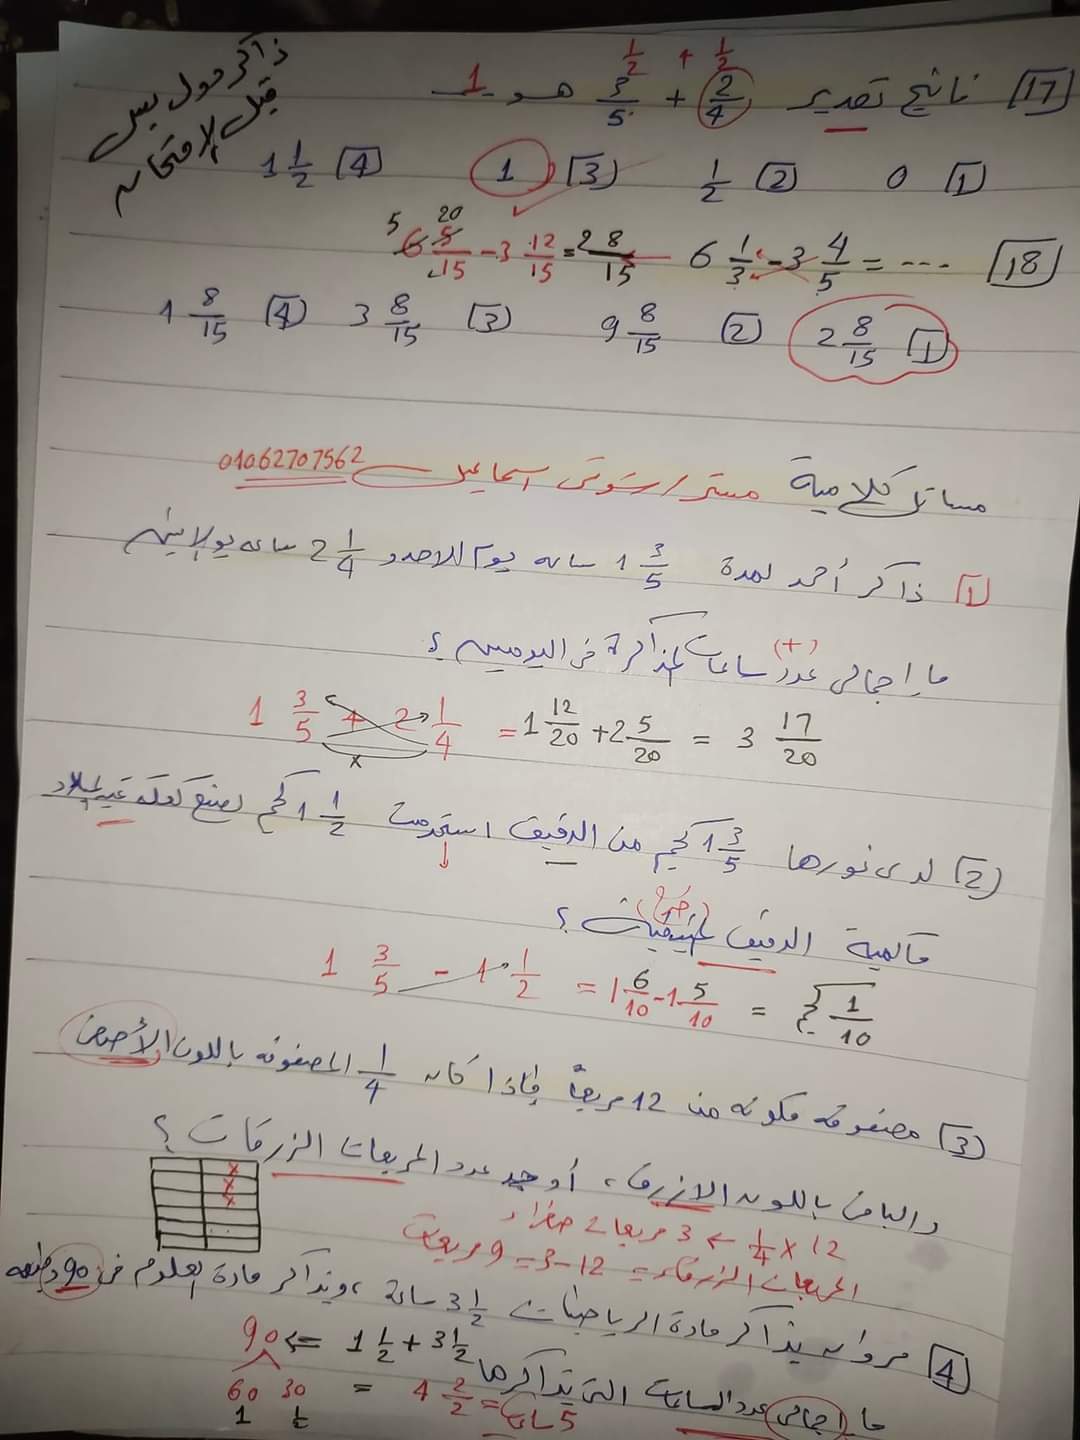 ذاكر دول بس
قبل الإمتحان
1/2 + 1/2
[17] ناتج تقدير 2/4 + 3/5 هو 1
[1] 0 [2] 1/2 [3] 1 [4] 1 1/2
[18] 6 1/3 - 3 4/5 = ....
5 20
6 5/15 - 3 12/15 = 2 8/15
[1] 2 8/15 [2] 9 8/15 [3] 3 8/15 [4] 1 8/15
مسائل كلامية مستر / شوقى اسماعيل 01062707562
[1] ذاكر أحمد لمدة 1 3/5 ساعه يوم الاحد و 2 1/4 ساعه يوم الإثنين
ما إجمالى عدد ساعات المذاكرة فى اليومين ؟
(+)
1 3/5 + 2 1/4 = 1 12/20 + 2 5/20 = 3 17/20
x
[2] لدى نورها 1 3/5 كجم من الدقيق استخدمت 1 1/2 كجم لصنع كعكة عيد الميلاد
ما كمية الدقيق المتبقيات ؟
(طرح)
1 3/5 - 1 1/2 = 1 6/10 - 1 5/10 = 1/10 كجم
[3] مصفوفة مكونه من 12 مربعاً فإذا كان 1/4 المصفوفه باللون الأصفر
والباقى باللون الازرق ، أوجد عدد المربعات الزرقات ؟
x
x
x
12 x 1/4 ← 3 مربعات صفراء
المربعات الزرقاء = 12 - 3 = 9 مربعات
[4] مروان يذاكر مادة الرياضيات 3 1/2 ساعة ، ويذاكر مادة العلوم فى 90 دقيقه
90 ⇐ 1 1/2 + 3 1/2
ما إجمالى عدد الساعات التى يذاكرها
60 30 = 4 2/2 = 5 ساعات
1 1/2